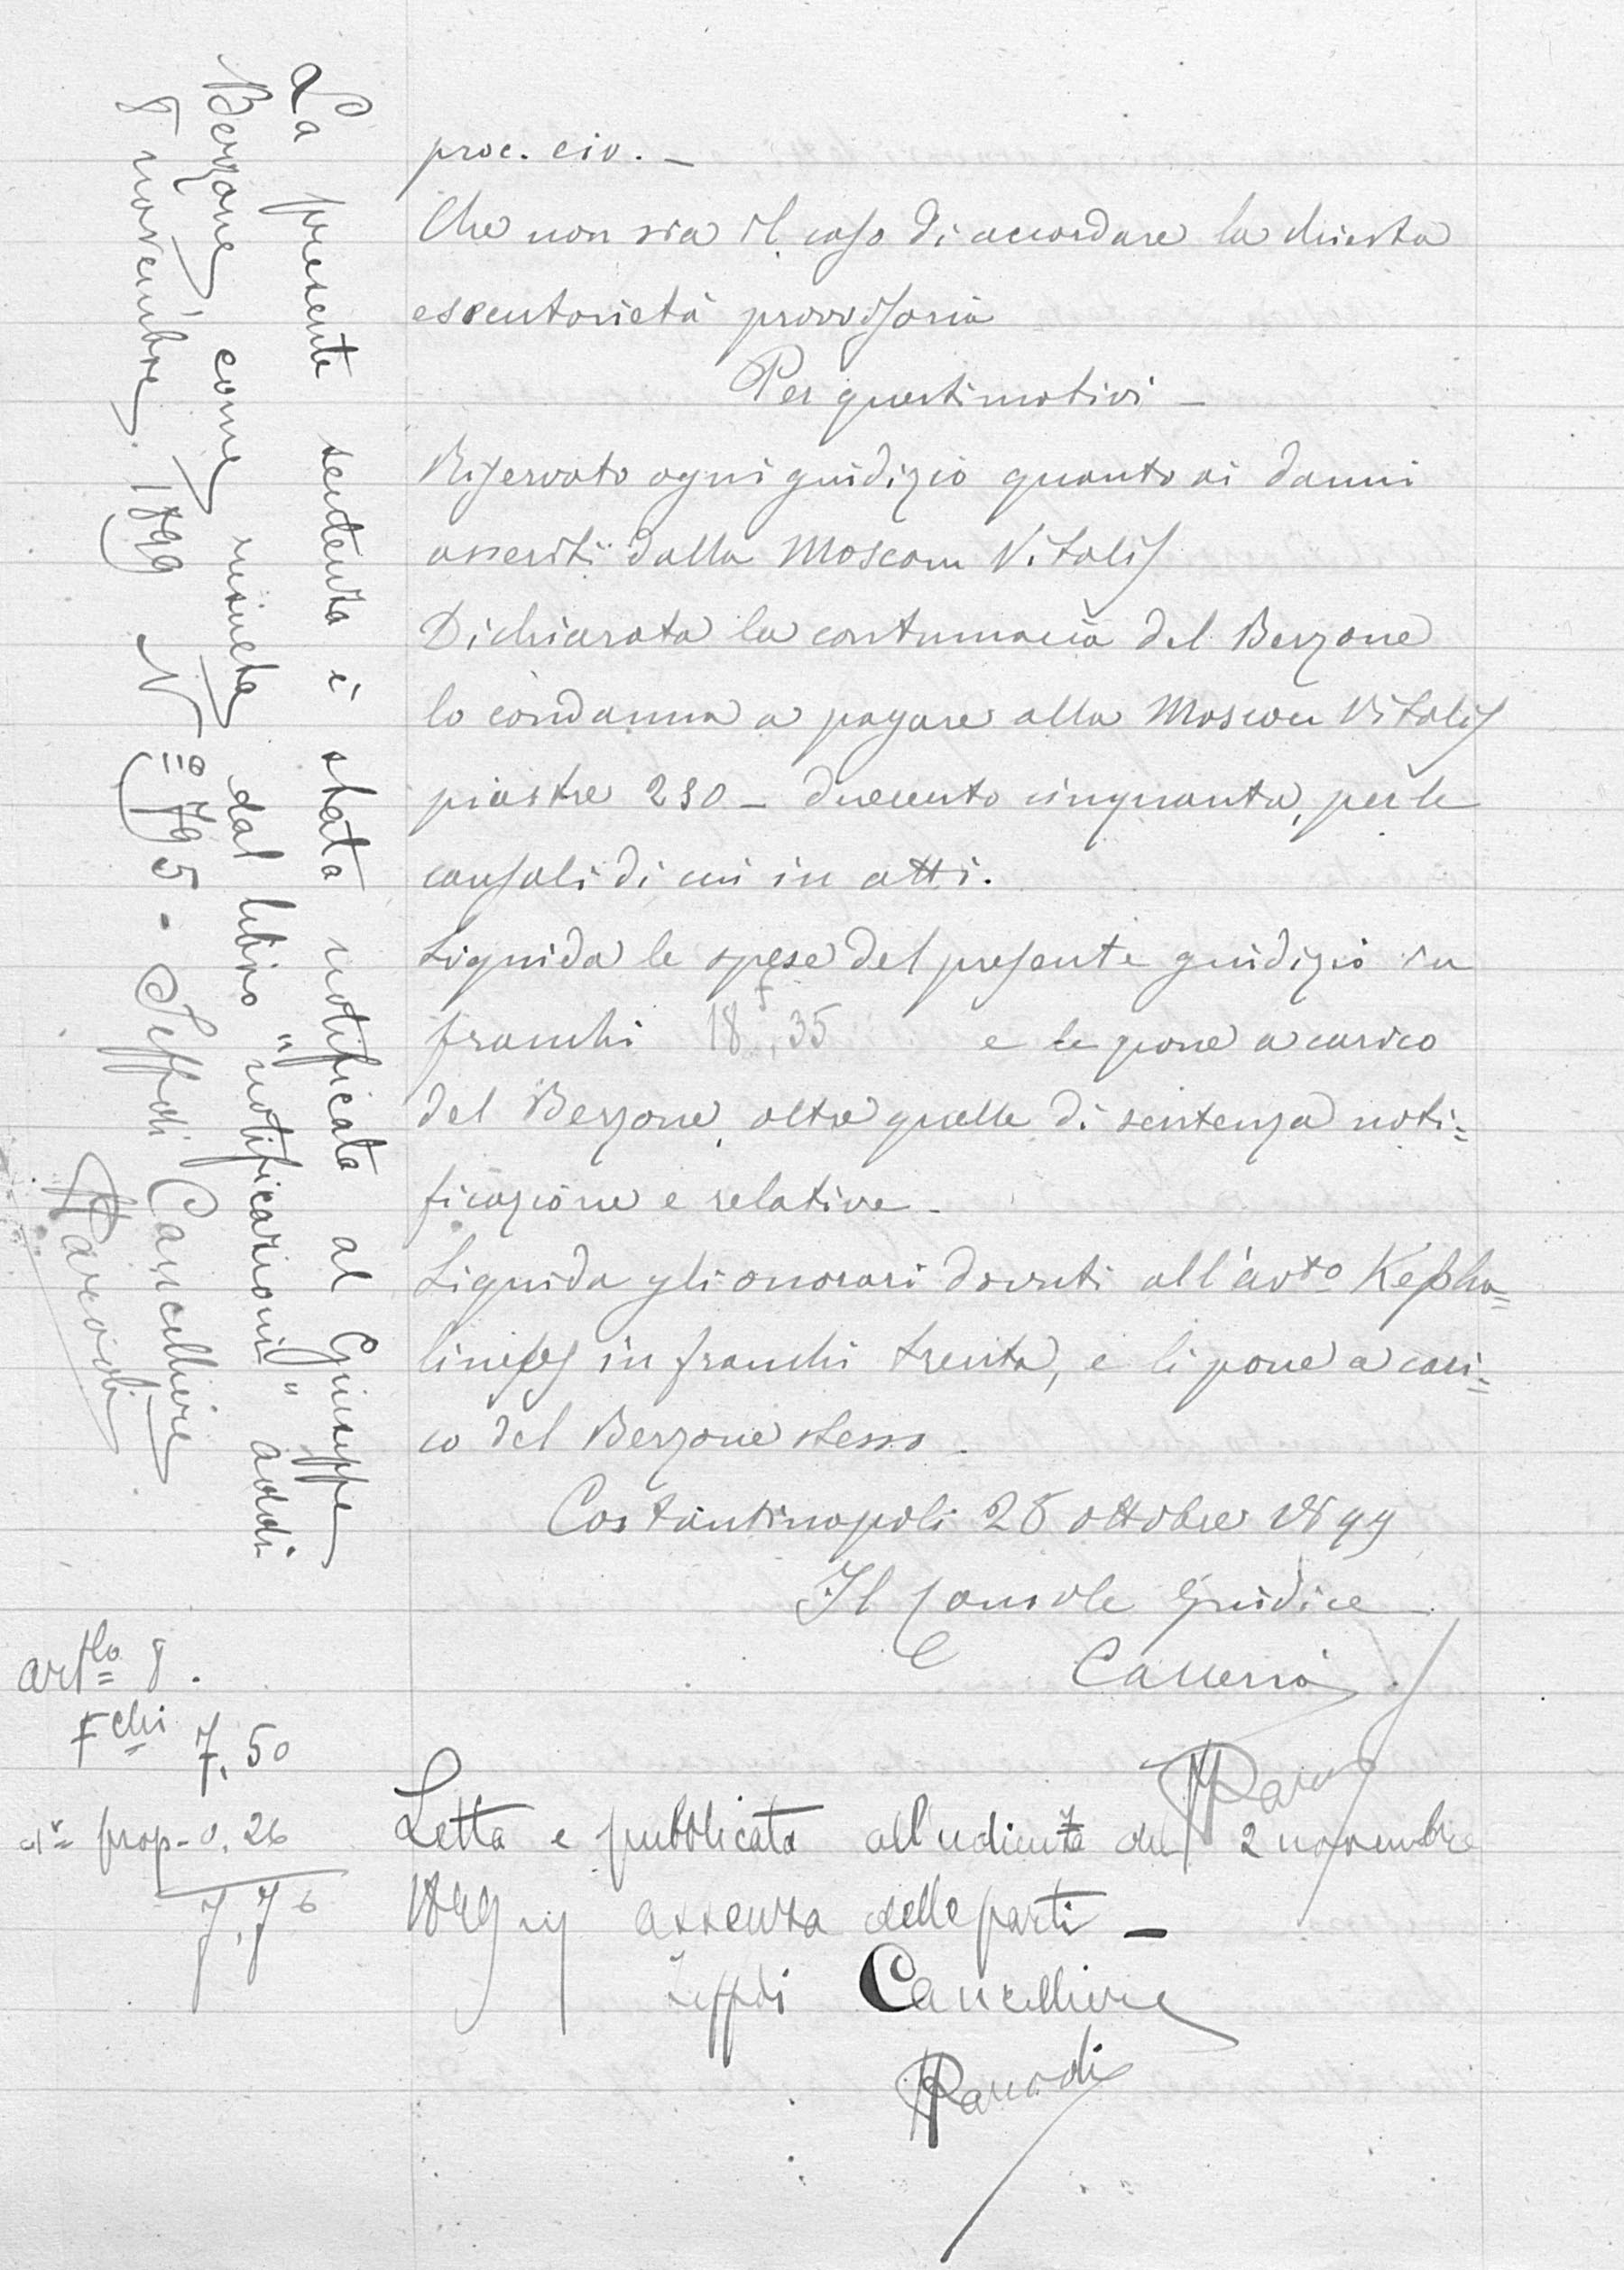 proc. civ. —
Che non sia il caso di accordare la chiesta
esecutorietà provvisoria
Per questi motivi —
Riservato ogni giudizio quanto ai danni
asseriti dalla Moscou Vitalis
Dichiarata la contumacia del Berzone
lo condanna a pagare alla Moscou Vitalis
piastre 250 — duecento cinquanta, per le
causali di cui in atti.
Liquida le spese del presente giudizio in
franchi 18f,35 e le pone a carico
del Berzone, oltre quelle di sentenza noti=
ficazione e relative —
Liquida gli onorari dovuti all'avto Kepha=
lines in franchi trenta, e li pone a cari=
co del Berzone stesso —
Costantinopoli 26 ottobre 1899
Il Console Giudice
Parodi
Letta e pubblicata all'udienza del 2 novembre
1899 in assenza delle parti —
Il ff di Cancelliere
Parodi
La presente sentenza è stata notificata al Giuseppe
Berzone, come risulta dal libro "notificazioni" addì
8 novembre 1899 No 795 - Il ff di Cancelliere
Parodi
artlo 8.
Fchi 7,50
prop - 0,26
7,76